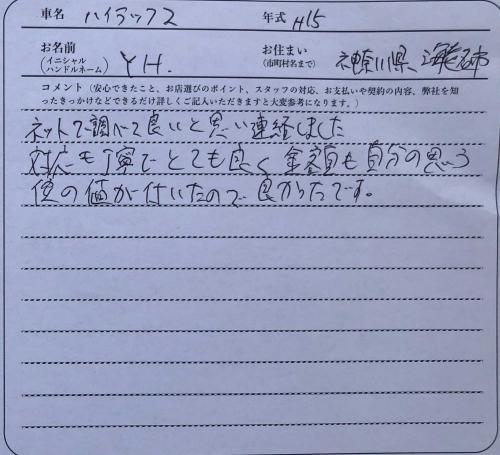 車名 ハイラックス 年式 H15
お名前 (イニシャル ハンドルネーム) Y H. お住まい (市町村名まで) 神奈川県 海老名市
コメント (安心できたこと、お店選びのポイント、スタッフの対応、お支払いや契約の内容、弊社を知
ったきっかけなどできるだけ詳しくご記入いただきますと大変参考になります。)
ネットで調べて良いと思い連絡しました
対応も丁寧でとても良く 金額も自分の思う
値が付いたので良かったです。